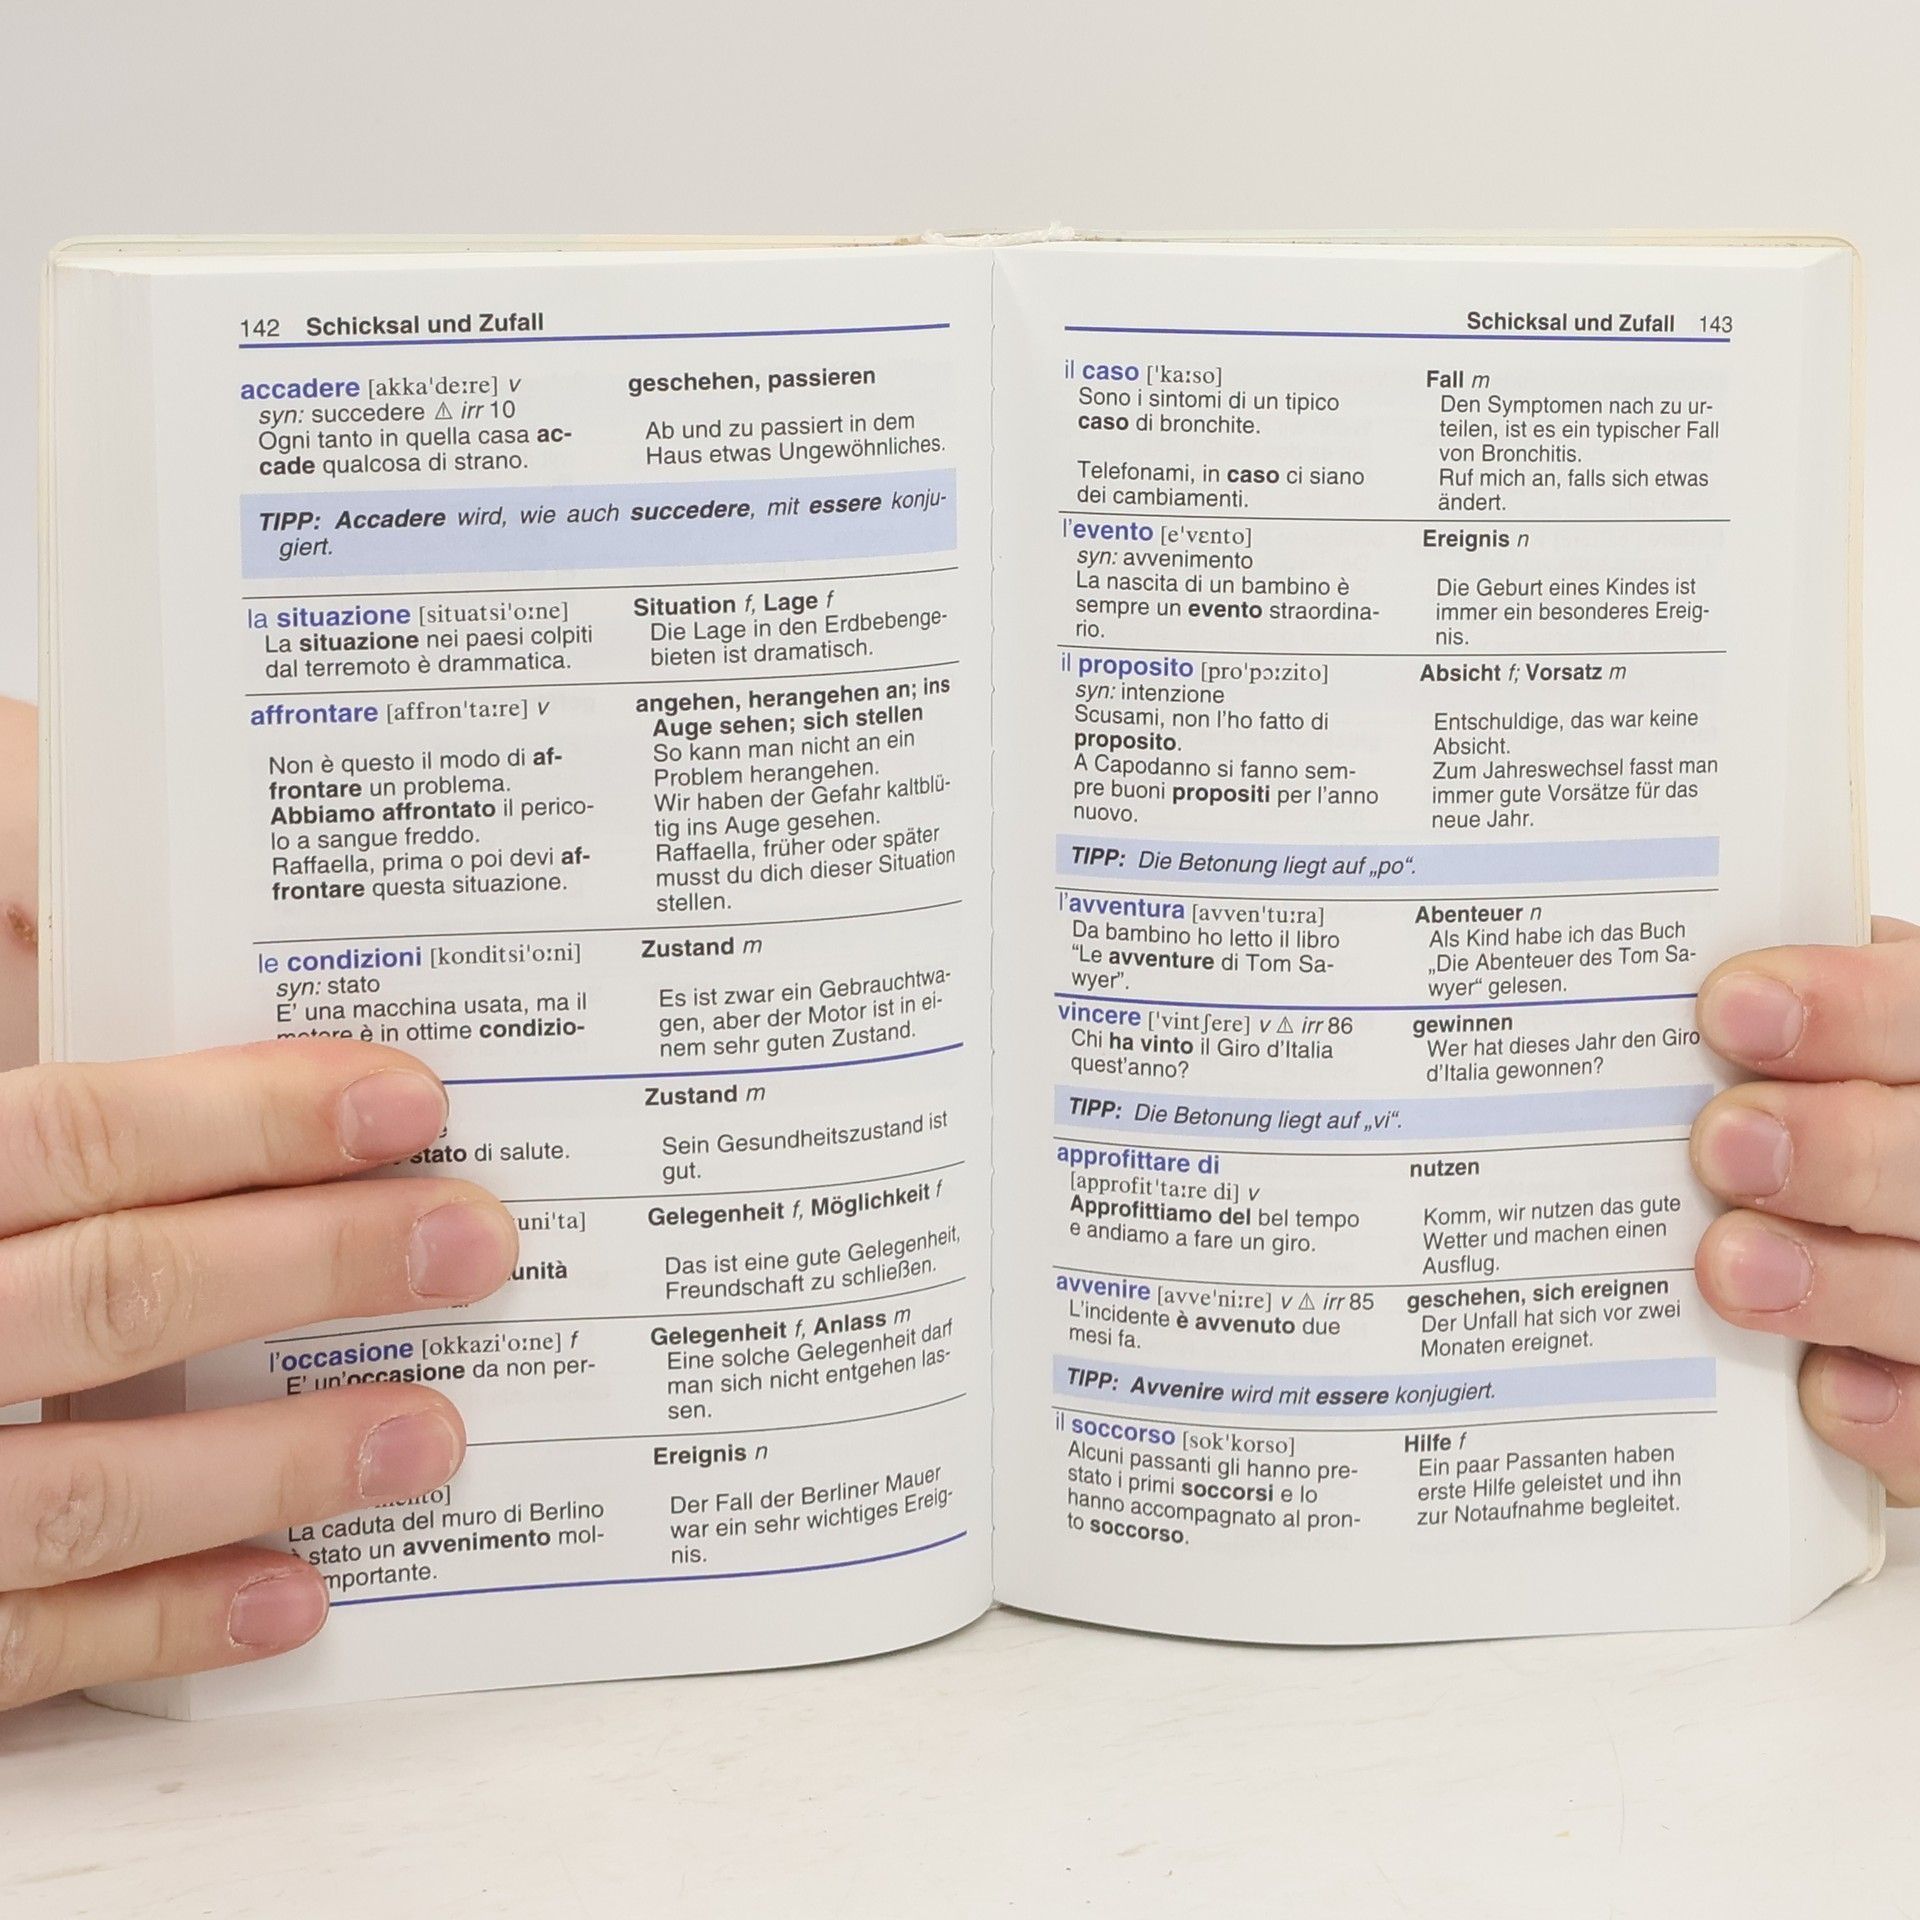 142 Schicksal und Zufall
accadere [akka'deːre] v
syn: succedere ⚠ irr 10
Ogni tanto in quella casa ac-
cade qualcosa di strano.
geschehen, passieren
Ab und zu passiert in dem
Haus etwas Ungewöhnliches.
TIPP: Accadere wird, wie auch succedere, mit essere konju-
giert.
la situazione [situatsi'oːne]
La situazione nei paesi colpiti
dal terremoto è drammatica.
Situation f, Lage f
Die Lage in den Erdbebenge-
bieten ist dramatisch.
affrontare [affron'taːre] v
Non è questo il modo di af-
frontare un problema.
Abbiamo affrontato il perico-
lo a sangue freddo.
Raffaella, prima o poi devi af-
frontare questa situazione.
angehen, herangehen an; ins
Auge sehen; sich stellen
So kann man nicht an ein
Problem herangehen.
Wir haben der Gefahr kaltblü-
tig ins Auge gesehen.
Raffaella, früher oder später
musst du dich dieser Situation
stellen.
le condizioni [konditsi'oːni]
syn: stato
E' una macchina usata, ma il
motore è in ottime condizio-
Zustand m
Es ist zwar ein Gebrauchtwa-
gen, aber der Motor ist in ei-
nem sehr guten Zustand.
stato di salute.
Zustand m
Sein Gesundheitszustand ist
gut.
uni'ta]
unità
Gelegenheit f, Möglichkeit f
Das ist eine gute Gelegenheit,
Freundschaft zu schließen.
l'occasione [okkazi'oːne] f
E' un'occasione da non per-
Gelegenheit f, Anlass m
Eine solche Gelegenheit darf
man sich nicht entgehen las-
sen.
La caduta del muro di Berlino
stato un avvenimento mol-
mportante.
Ereignis n
Der Fall der Berliner Mauer
war ein sehr wichtiges Ereig-
nis.
Schicksal und Zufall 143
il caso ['kaːso]
Sono i sintomi di un tipico
caso di bronchite.
Telefonami, in caso ci siano
dei cambiamenti.
Fall m
Den Symptomen nach zu ur-
teilen, ist es ein typischer Fall
von Bronchitis.
Ruf mich an, falls sich etwas
ändert.
l'evento [e'vɛnto]
syn: avvenimento
La nascita di un bambino è
sempre un evento straordina-
rio.
Ereignis n
Die Geburt eines Kindes ist
immer ein besonderes Ereig-
nis.
il proposito [pro'pɔːzito]
syn: intenzione
Scusami, non l'ho fatto di
proposito.
A Capodanno si fanno sem-
pre buoni propositi per l'anno
nuovo.
Absicht f; Vorsatz m
Entschuldige, das war keine
Absicht.
Zum Jahreswechsel fasst man
immer gute Vorsätze für das
neue Jahr.
TIPP: Die Betonung liegt auf „po“.
l'avventura [avven'tuːra]
Da bambino ho letto il libro
“Le avventure di Tom Sa-
wyer”.
Abenteuer n
Als Kind habe ich das Buch
„Die Abenteuer des Tom Sa-
wyer“ gelesen.
vincere ['vintʃere] v ⚠ irr 86
Chi ha vinto il Giro d'Italia
quest'anno?
gewinnen
Wer hat dieses Jahr den Giro
d'Italia gewonnen?
TIPP: Die Betonung liegt auf „vi“.
approfittare di
[approfit'taːre di] v
Approfittiamo del bel tempo
e andiamo a fare un giro.
nutzen
Komm, wir nutzen das gute
Wetter und machen einen
Ausflug.
avvenire [avve'niːre] v ⚠ irr 85
L'incidente è avvenuto due
mesi fa.
geschehen, sich ereignen
Der Unfall hat sich vor zwei
Monaten ereignet.
TIPP: Avvenire wird mit essere konjugiert.
il soccorso [sok'korso]
Alcuni passanti gli hanno pre-
stato i primi soccorsi e lo
hanno accompagnato al pron-
to soccorso.
Hilfe f
Ein paar Passanten haben
erste Hilfe geleistet und ihn
zur Notaufnahme begleitet.